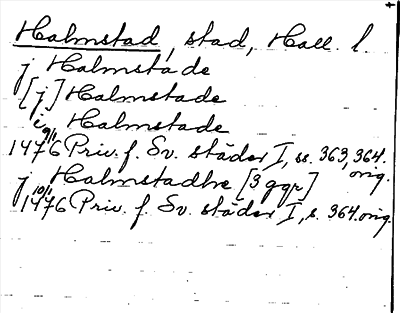 Halmstad, stad, Hall. l.
j Halmstade
[j] Halmstade
i Halmstade
9/1 1476 Priv. f. Sv. städer I, ss. 363, 364. orig.
j Halmstadhe [3 ggr]
10/1 1476 Priv. f. Sv. städer I, s. 364. orig.